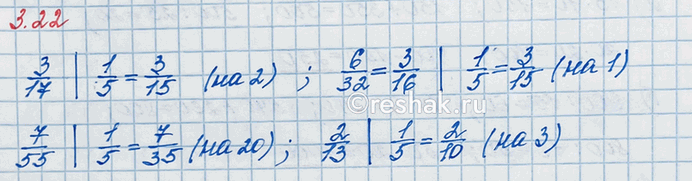 3.22
3/17 | 1/5 = 3/15 (на 2) ; 6/32 = 3/16 | 1/5 = 3/15 (на 1)
©reshak.ru
7/55 | 1/5 = 7/35 (на 20) ; 2/13 | 1/5 = 2/10 (на 3)